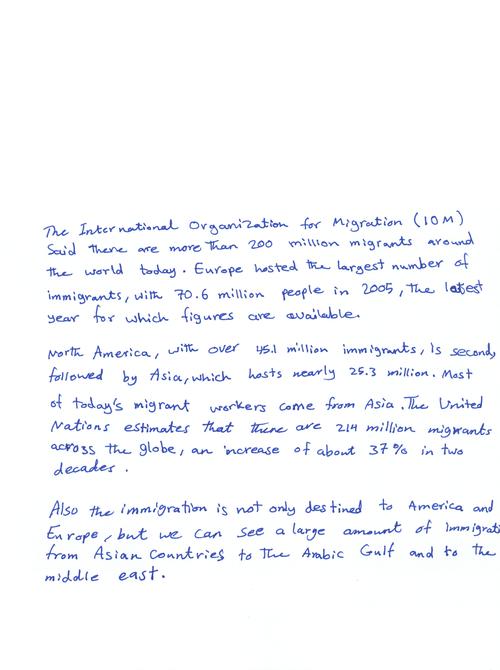 The International Organization for Migration (IOM)
Said there are more than 200 million migrants around
the world today. Europe hosted the largest number of
immigrants, with 70.6 million people in 2005, the latest
year for which figures are available.
North America, with over 45.1 million immigrants, is second,
followed by Asia, which hosts nearly 25.3 million. Most
of today's migrant workers come from Asia. The United
Nations estimates that there are 214 million migrants
across the globe, an increase of about 37% in two
decades.
Also the immigration is not only destined to America and
Europe, but we can see a large amount of immigrati
from Asian Countries to the Arabic Gulf and to the
middle east.